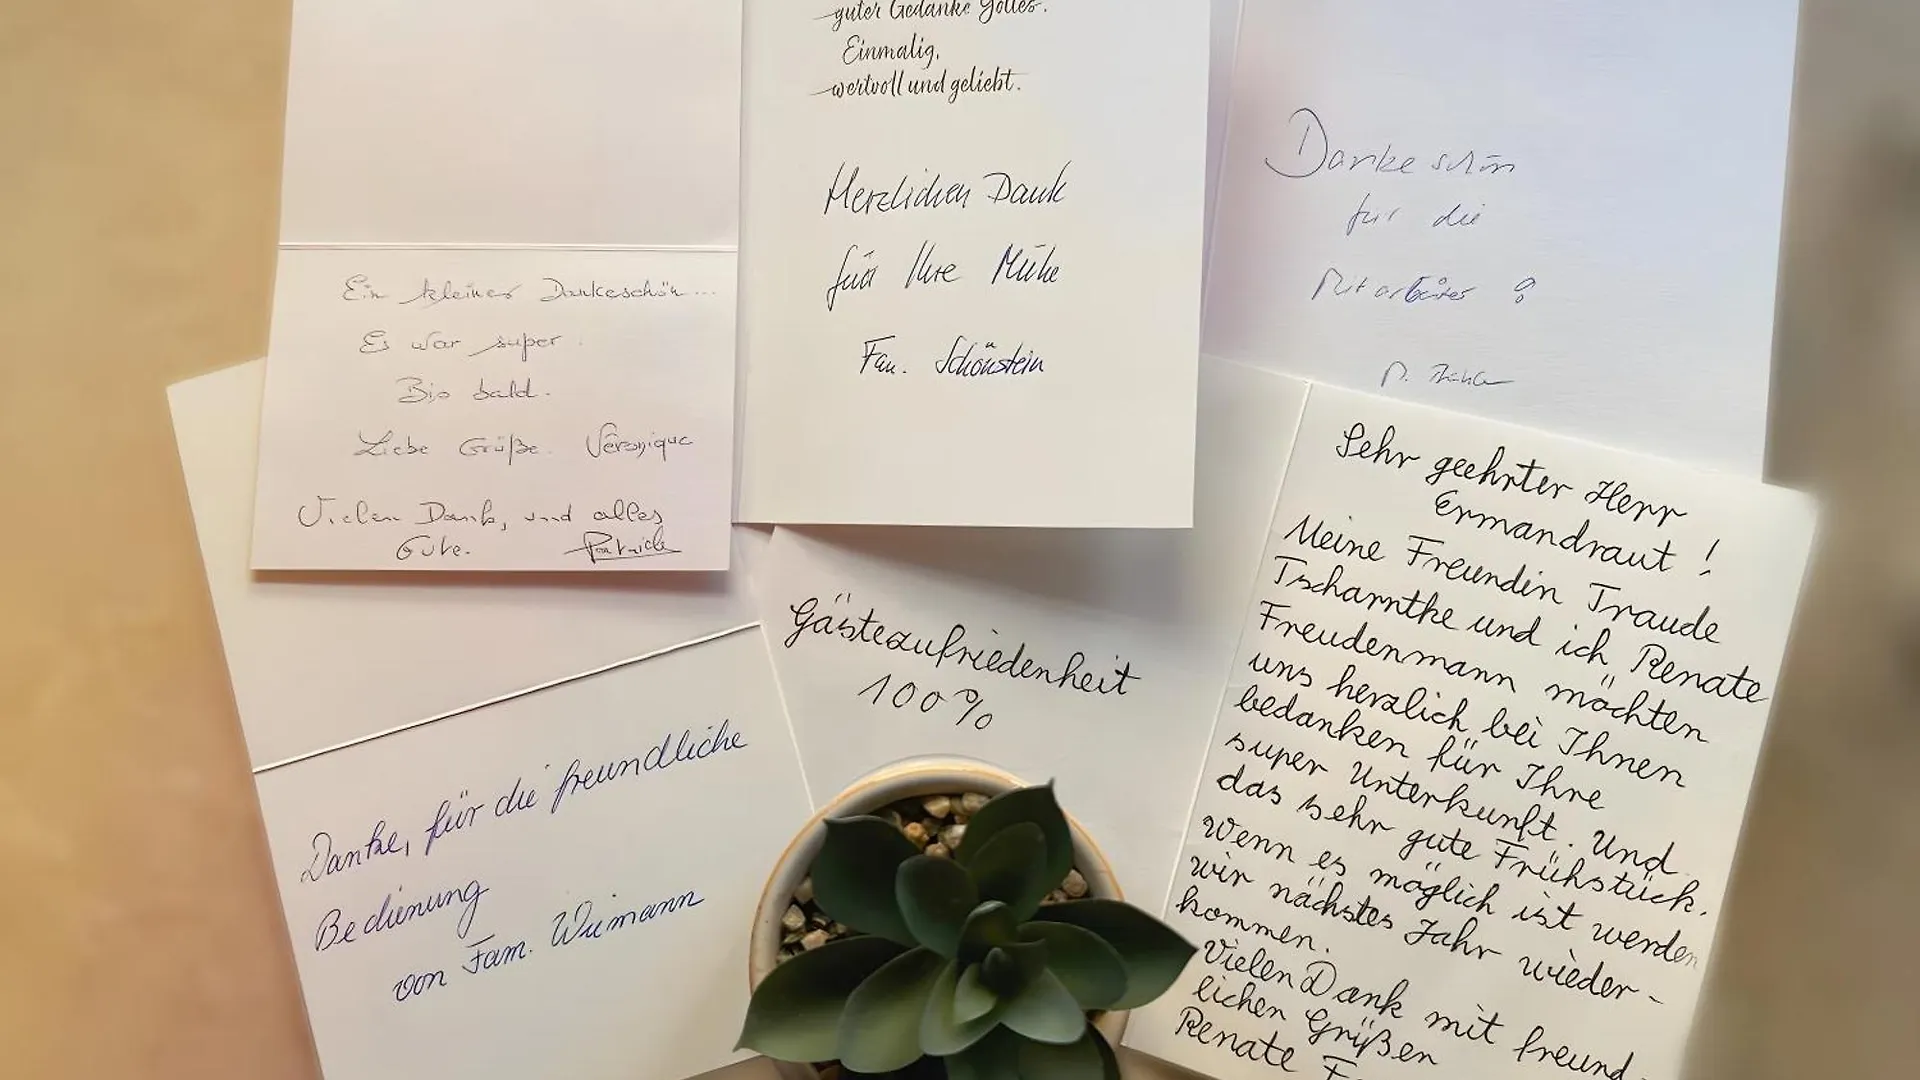 Ein kleines Dankeschön...
Es war super.
Bis bald.
Liebe Grüße. Véronique
Vielen Dank, und alles
Gute. Patrick
guter Gedanke Gottes.
Einmalig,
wertvoll und geliebt.
Herzlichen Dank
für Ihre Mühe
Fam. Schönstein
Dankeschön
für die
Mitarbeiter
Danke, für die freundliche
Bedienung
von Fam. Wiemann
Gästezufriedenheit
100%
Sehr geehrter Herr
Ermandraut !
Meine Freundin Traude
Tscharntke und ich, Renate
Freudenmann möchten
uns herzlich bei Ihnen
bedanken für Ihre
super Unterkunft. Und
das sehr gute Frühstück.
Wenn es möglich ist werden
wir nächstes Jahr wieder-
kommen.
Vielen Dank mit freund-
lichen Grüßen
Renate